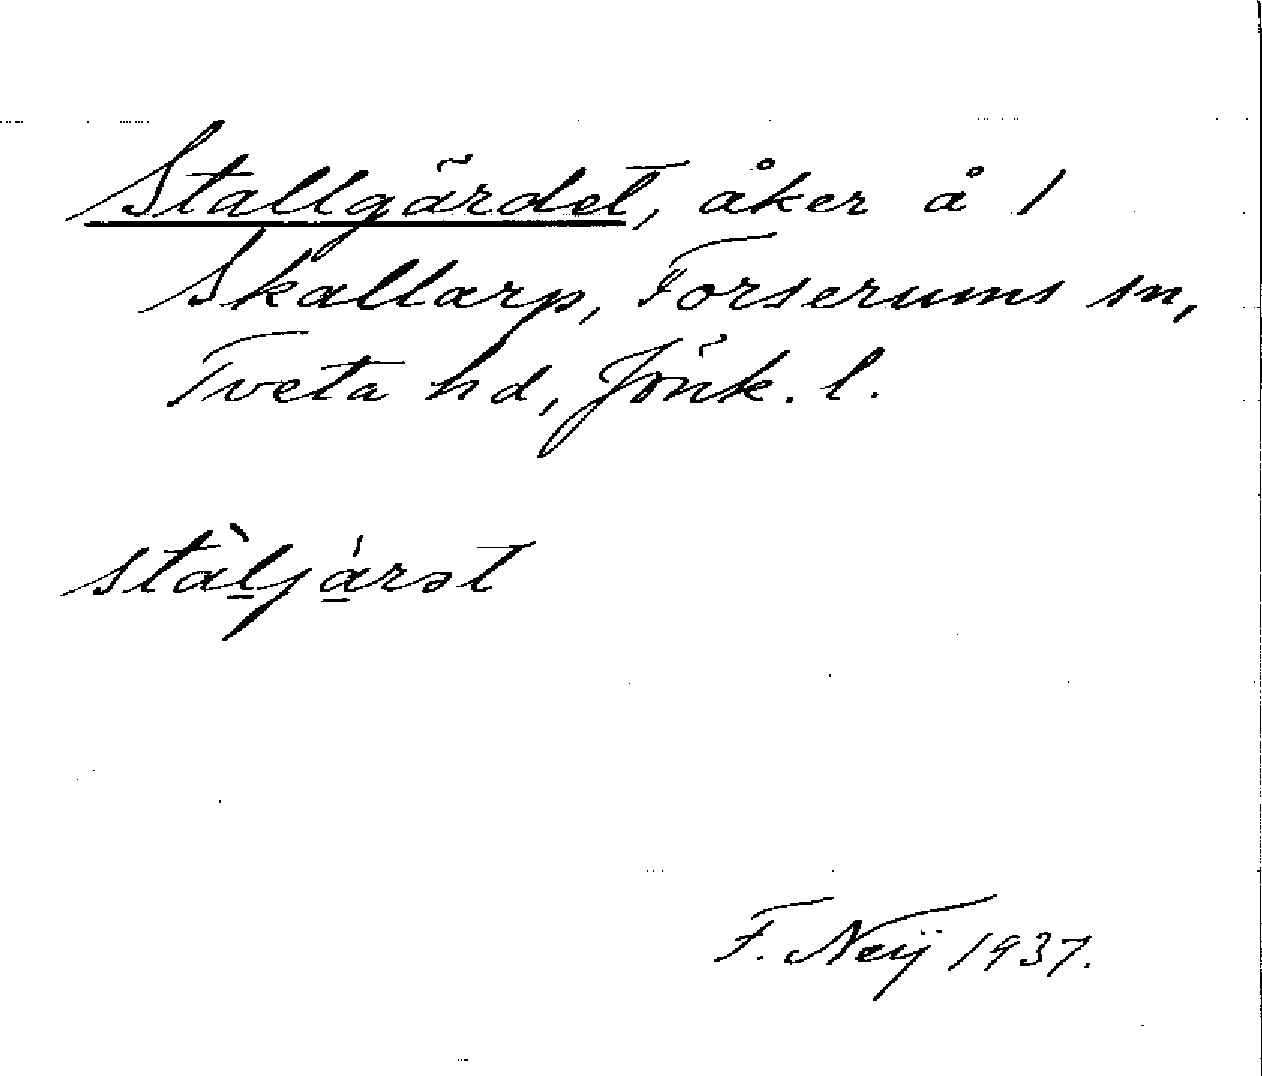 Stallgärdet, åker å 1
Skallarp, Forserums sn,
Tveta hd, Jönk. l.
stàl̠já̠rət
F. Neij 1937.